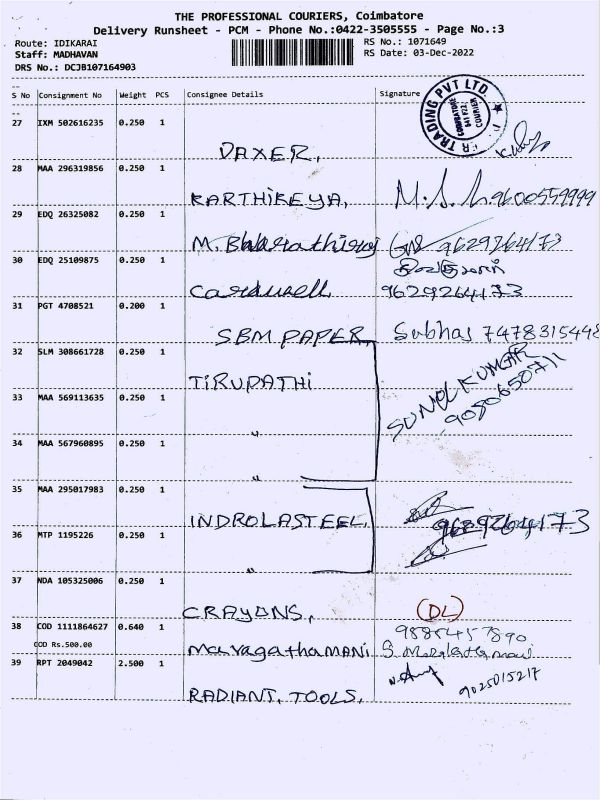 THE PROFESSIONAL COURIERS, Coimbatore
Delivery Runsheet - PCM - Phone No.:0422-3505555 - Page No.:3
Route: IDIKARAI RS No.: 1071649
Staff: MADHAVAN RS Date: 03-Dec-2022
DRS No.: DCJB107164903
S No Consignment No Weight PCS Consignee Details Signature
TRADING PVT LTD.
COIMBATORE
COURIER
27 IXM 502616235 0.250 1
DAXER,
28 MAA 296319856 0.250 1
KARTHIKEYA, M.S. 9600559999
29 EDQ 26325082 0.250 1
M. Bharathiraj 9629264173
30 EDQ 25109875 0.250 1
Cardwell 9629264173
31 PGT 4708521 0.200 1
SBM PAPER, Subhas 7478315448
32 SLM 308661728 0.250 1
TIRUPATHI SUNIL KUMAR
9080650711
33 MAA 569113635 0.250 1
"
34 MAA 567960895 0.250 1
"
35 MAA 295017983 0.250 1
INDROLASTEEL, 9629264173
36 MTP 1195226 0.250 1
"
37 NDA 105325006 0.250 1
CRAYONS, (DL)
38 COD 1111864627 0.640 1
COD Rs.500.00
MaragathaMANI
39 RPT 2049042 2.500 1
RADIANT, TOOLS, 9025015217